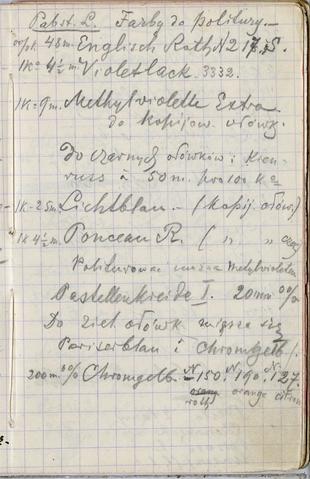 Pabst. L. Farby do politury.—
%pk 48 m Englisch Roth N 217. S.
1K= 4½ m. Violetlack. 3332.
1K=9m. Methylviolette Extra
do kopijow. ołówk.
Do czarnych ołówków i Kien-
russ à 50 m. pro 100 K
1K=25m. Lichtblau.— (kopij. ołów.)
1K 4½ m. Ponceau R. ( „ „
Politurowa Metylvioletem
Pastellenkreide I. 20 m %
Do ziel ołówk miesza się
Pariserblau i Chromgelb
200 m. % Chromgelb. N 150. N 190. N. 127.
orang
roth orange citron